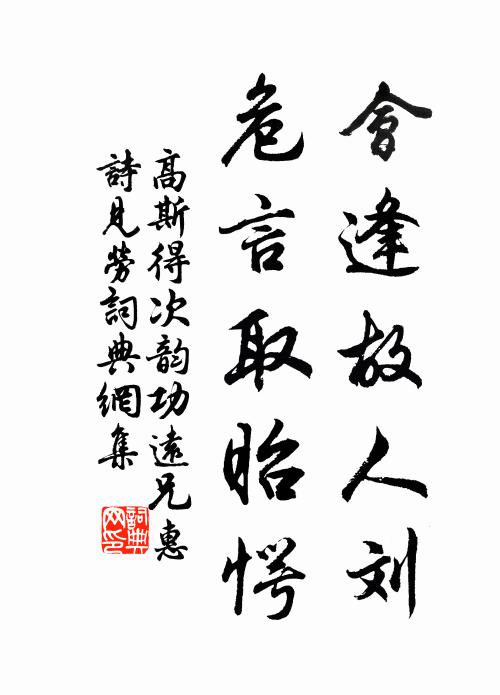 會逢故人刘
危言取眙愕
高斯得次韵功遠兄惠
詩見勞詞典網集
詞典
网印